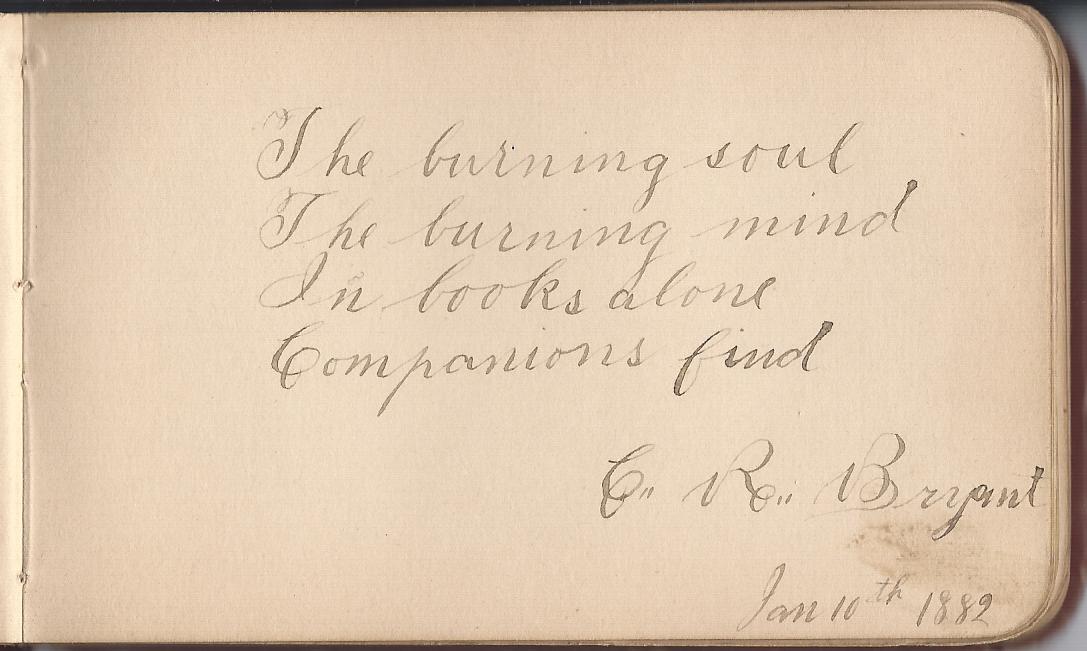 The burning soul
The burning mind
In books alone
Companions find
C. R. Bryant
Jan 10th 1882